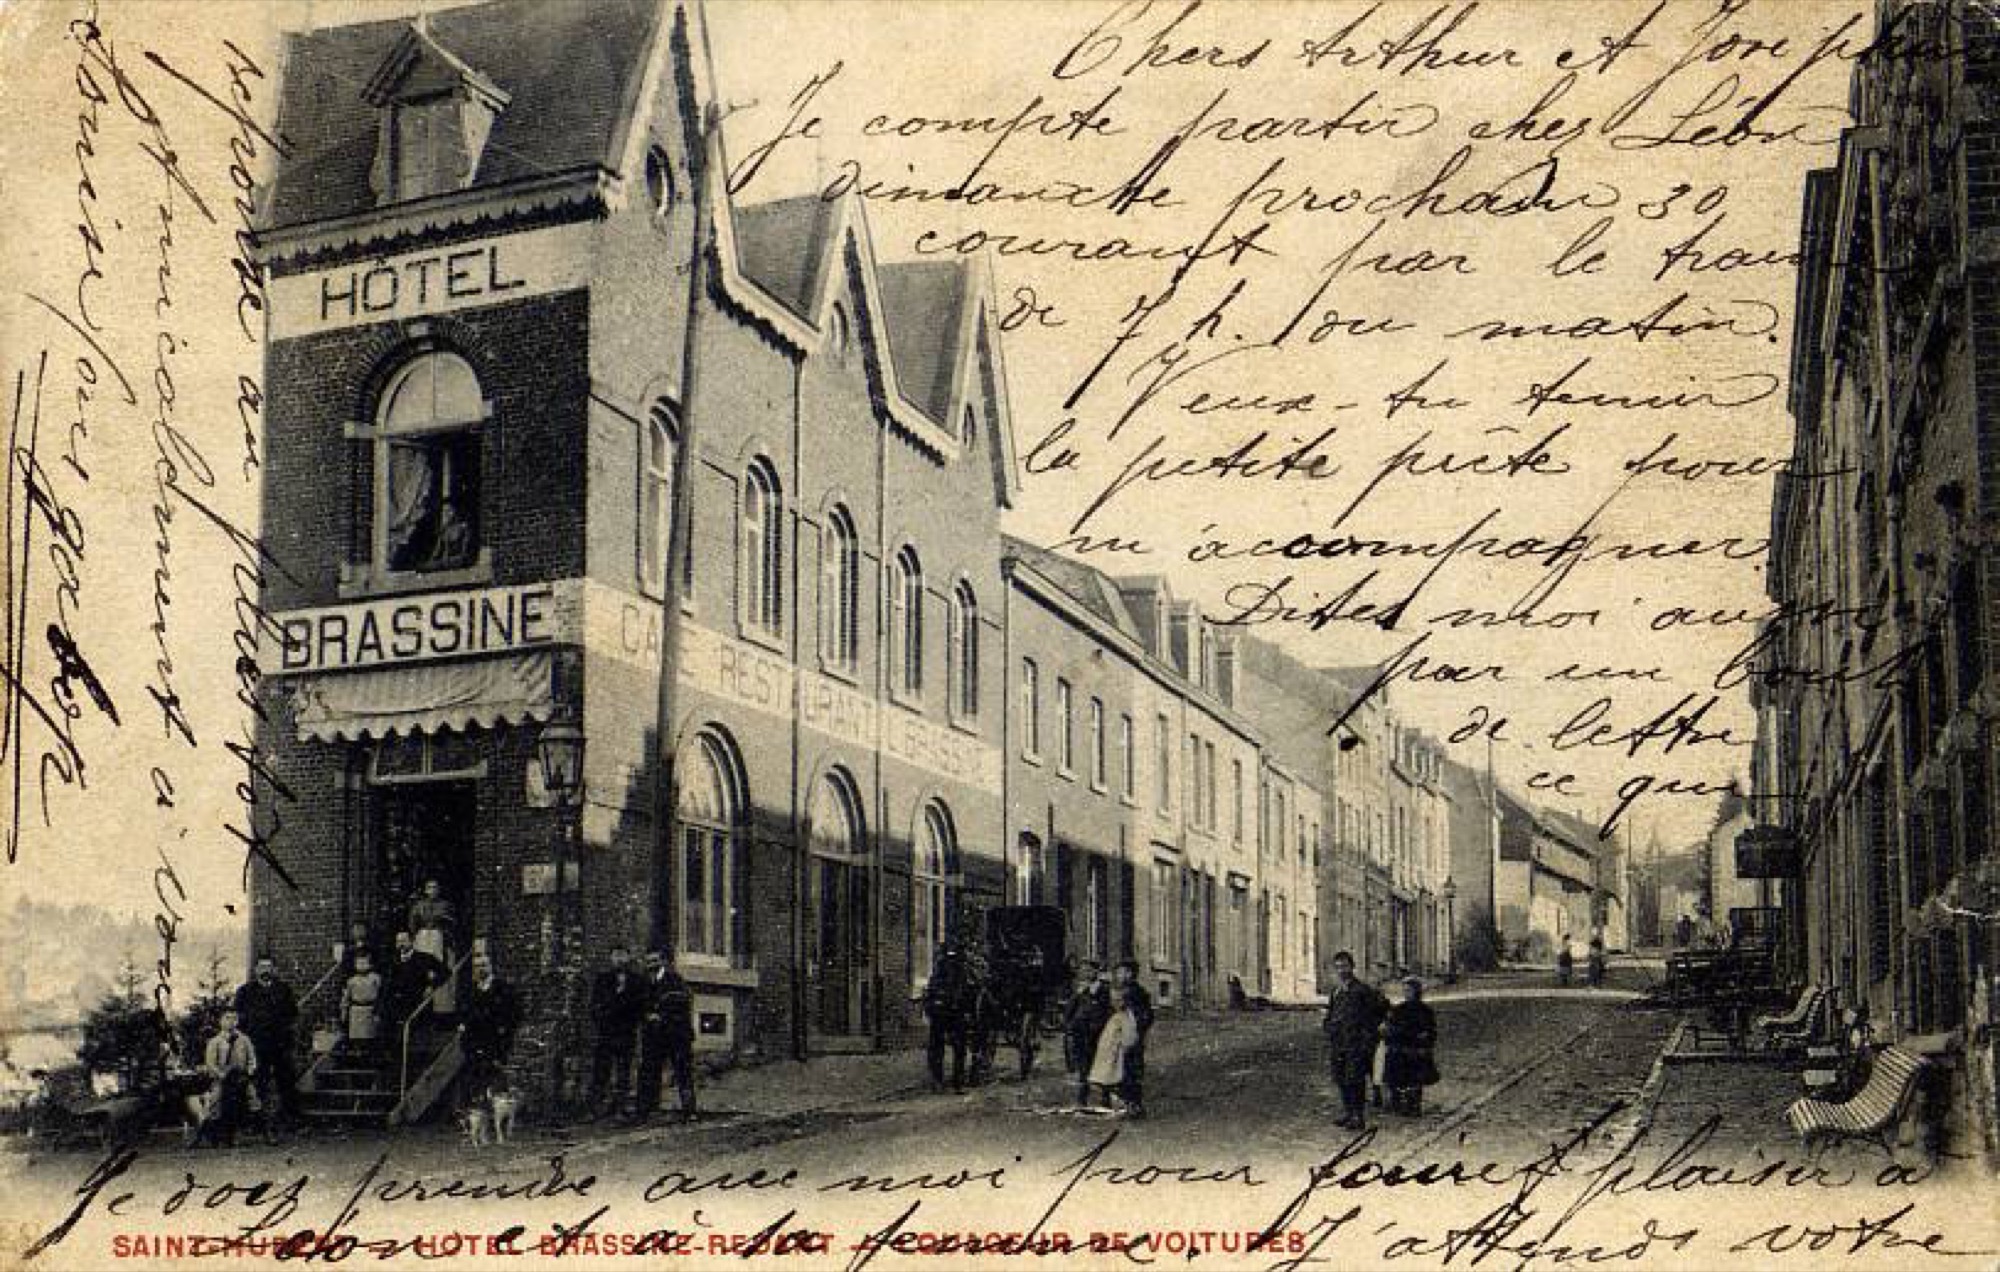 Chers Arthur et Joséphine
Je compte partir chez Léon
dimanche prochain 30
courant par le train
de 7 h. du matin.
Veux-tu tenir
la petite prête pour
m'accompagner.
Dites moi aussi
par un bout
de lettre
ce que
Je dois prendre avec moi pour faire plaisir à
Léon et à sa femme. J'attends votre
réponse au plus tôt
et amicalement à vous
Louise
HÔTEL
BRASSINE
CAFÉ RESTAURANT BRASSINE
SAINT-HUBERT — HÔTEL BRASSINE-REDART — LOUAGEUR DE VOITURES